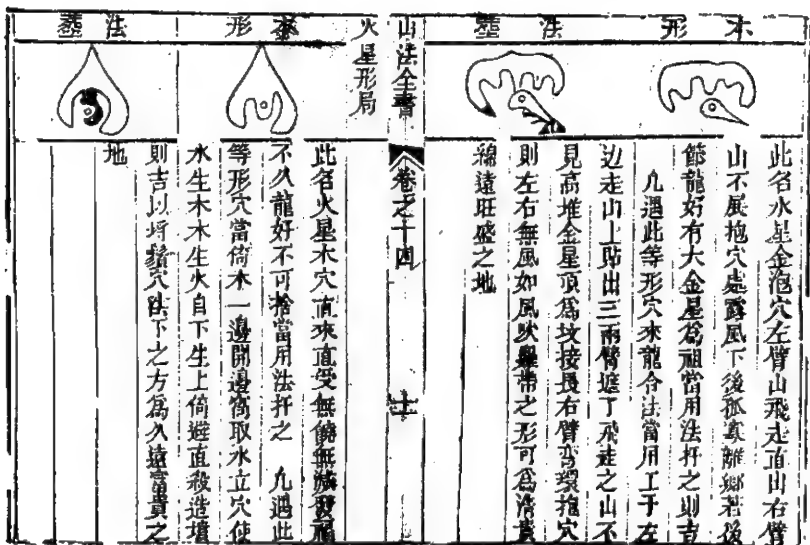 本形
法葬
此名水星金泡穴左臂山飛走直出右臂
山不展抱穴處露風下後孤寡離鄉若後
節龍好有大金星為祖當用法扦之則吉
凡遇此等形穴來龍合法當用工于左
边走山上貼出三兩臂遮了飛走之山不
見高堆金星頂為坟接長右臂弯環抱穴
則左右無風如風吹羅帶之形可為清貴
綿遠旺盛之地
山法全書
卷之十四
十二
火星形局
本形
法葬
此名火星木穴直來直受無饒無減發福
不久龍好不可捨當用法扦之 凡遇此
等形穴當倚木一邊開邊窩取水立穴使
水生木木生火自下生上倚避直殺造墳
則吉以將鬚穴法下之方為久遠富貴之
地